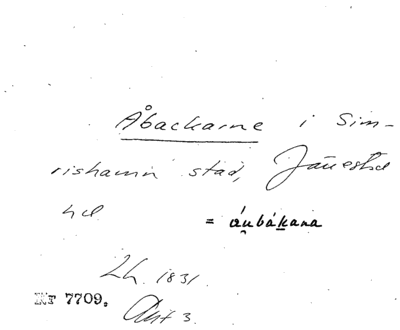 Åbackarne i Sim-
rishamn stad, Järrestad
hd
= áu̯bák̲ana
Lh. 1831.
Nr 7709. Akt 3.